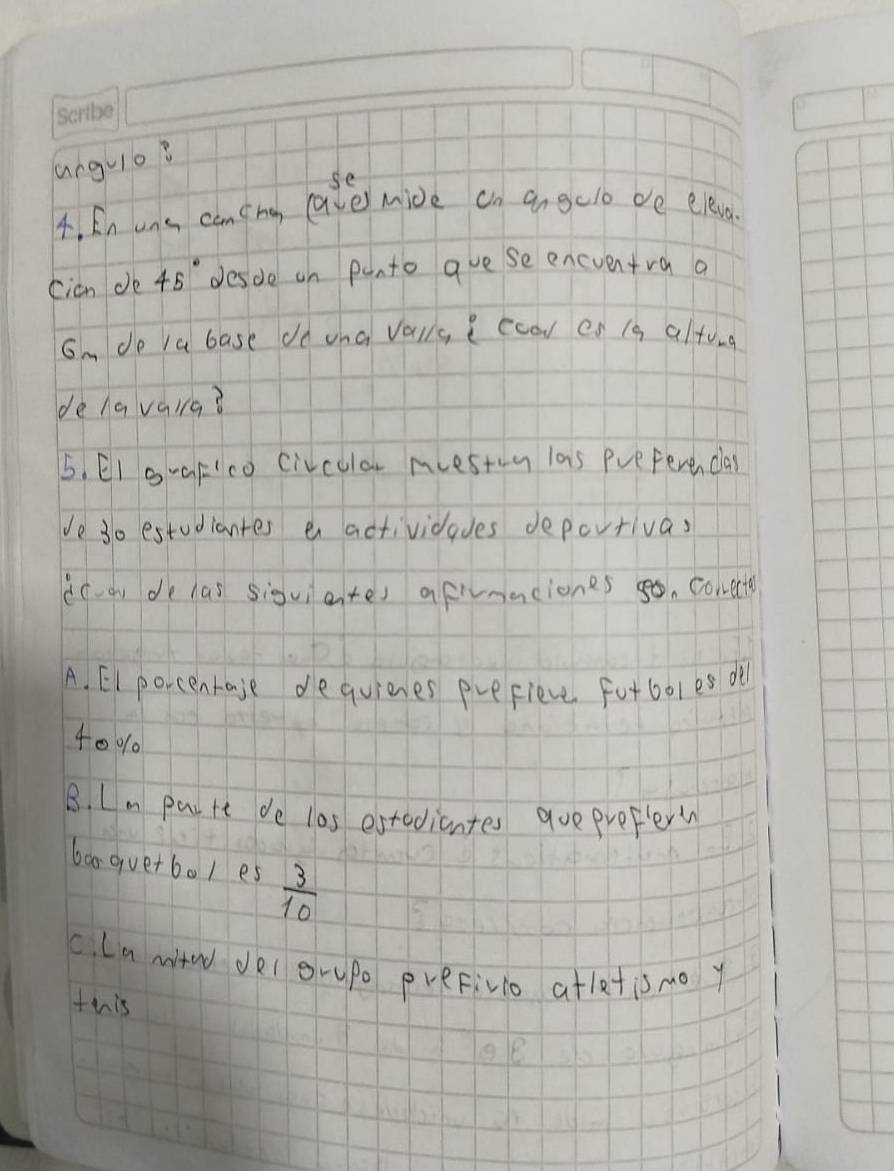 Scribe
angulo?
se
4. En una cancha (que) mide un angulo de eleva-
cion de 45° desde un punto que se encuentra a
6m de la base de una valla ¿cual es la altura
de la valla?
5. El grafico circular muestra las preferencias
de 30 estudiantes en actividades deportivas
¿cual de las siguientes afirmaciones son correctas
A. El porcentaje de quienes prefieren futbol es del
40%
B. La parte de los estudiantes que prefieren
basquetbol es 3/10
C. La mitad del grupo prefirio atletismo y
tenis